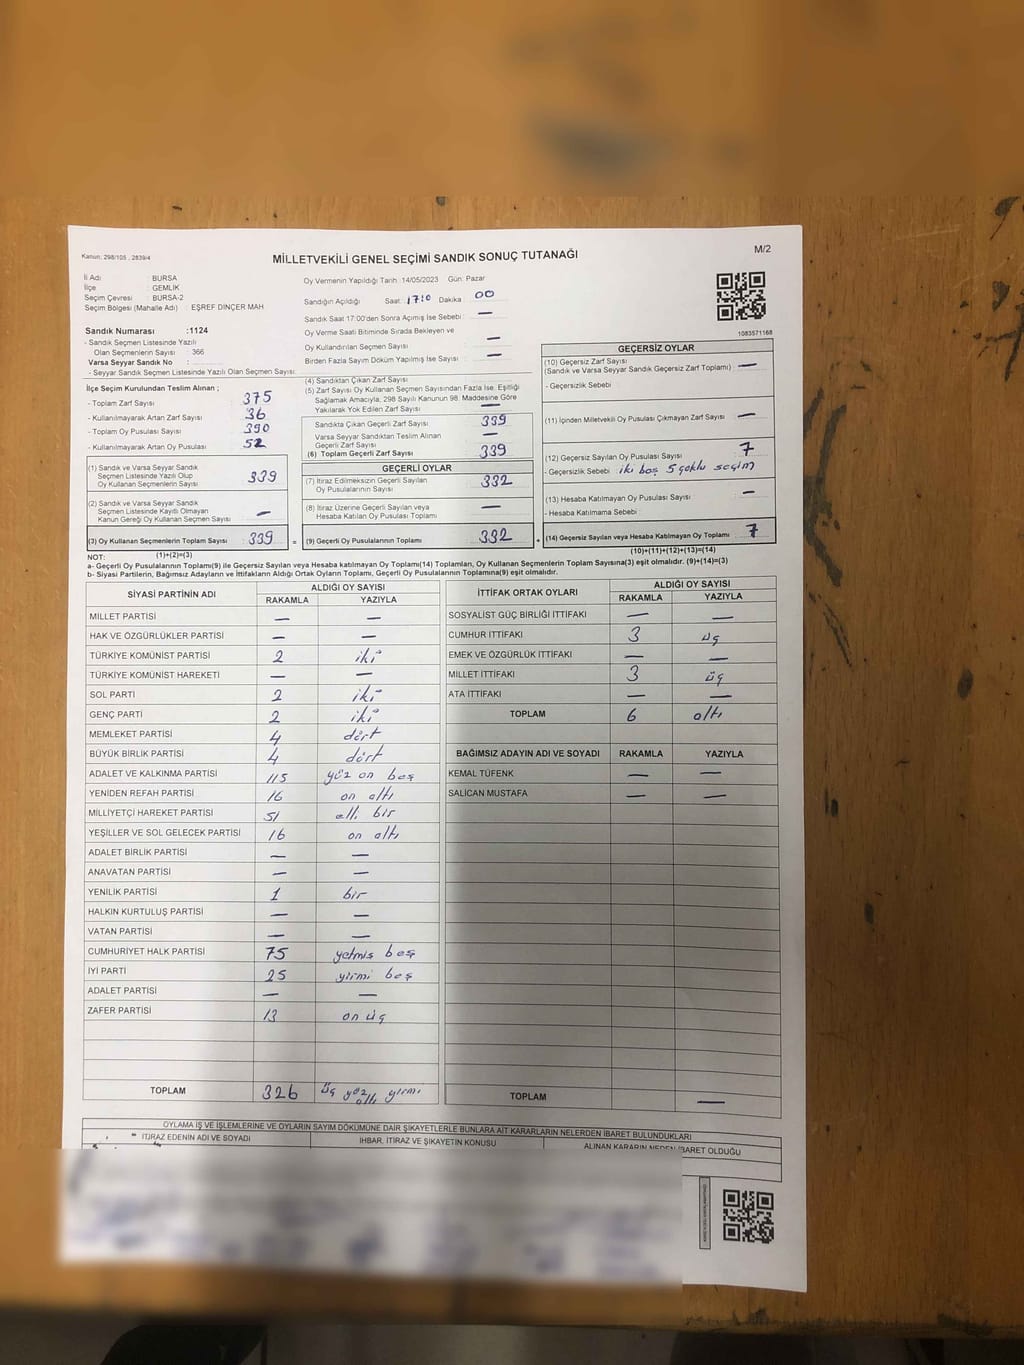 Kanun: 298/105 , 2839/4
MİLLETVEKİLİ GENEL SEÇİMİ SANDIK SONUÇ TUTANAĞI
M/2
İl Adı : BURSA
İlçe : GEMLİK
Seçim Çevresi : BURSA-2
Seçim Bölgesi (Mahalle Adı) : EŞREF DİNÇER MAH
Oy Vermenin Yapıldığı Tarih :14/05/2023 Gün: Pazar
Sandığın Açıldığı Saat: 17:0 Dakika : 00
Sandık Saat 17:00'den Sonra Açımış İse Sebebi : —
Oy Verme Saati Bitiminde Sırada Bekleyen ve
Oy Kullandırılan Seçmen Sayısı —
Birden Fazla Sayım Döküm Yapılmış İse Sayısı : —
1083571168
Sandık Numarası :1124
- Sandık Seçmen Listesinde Yazılı
Olan Seçmenlerin Sayısı : 366
Varsa Seyyar Sandık No :
- Seyyar Sandık Seçmen Listesinde Yazılı Olan Seçmen Sayısı:
İlçe Seçim Kurulundan Teslim Alınan ;
- Toplam Zarf Sayısı : 375
- Kullanılmayarak Artan Zarf Sayısı : 36
- Toplam Oy Pusulası Sayısı : 390
- Kullanılmayarak Artan Oy Pusulası : 52
(1) Sandık ve Varsa Seyyar Sandık
Seçmen Listesinde Yazılı Olup
Oy Kullanan Seçmenlerin Sayısı : 339
(2) Sandık ve Varsa Seyyar Sandık
Seçmen Listesinde Kayıtlı Olmayan
Kanun Gereği Oy Kullanan Seçmen Sayısı : —
(3) Oy Kullanan Seçmenlerin Toplam Sayısı : 339 =
(4) Sandıktan Çıkan Zarf Sayısı
(5) Zarf Sayısı Oy Kullanan Seçmen Sayısından Fazla İse, Eşitliği
Sağlamak Amacıyla; 298 Sayılı Kanunun 98. Maddesine Göre
Yakılarak Yok Edilen Zarf Sayısı : —
Sandıkta Çıkan Geçerli Zarf Sayısı: 339
Varsa Seyyar Sandıktan Teslim Alınan
Geçerli Zarf Sayısı —
(6) Toplam Geçerli Zarf Sayısı 339
GEÇERLİ OYLAR
(7) İtiraz Edilmeksizin Geçerli Sayılan
Oy Pusulalarının Sayısı : 332
(8) İtiraz Üzerine Geçerli Sayılan veya
Hesaba Katılan Oy Pusulası Toplamı : —
(9) Geçerli Oy Pusulalarının Toplamı : 332 +
GEÇERSİZ OYLAR
(10) Geçersiz Zarf Sayısı
(Sandık ve Varsa Seyyar Sandık Geçersiz Zarf Toplamı) —
- Geçersizlik Sebebi :
(11) İçinden Milletvekili Oy Pusulası Çıkmayan Zarf Sayısı —
(12) Geçersiz Sayılan Oy Pusulası Sayısı 7
- Geçersizlik Sebebi : iki boş 5 çoklu seçim
(13) Hesaba Katılmayan Oy Pusulası Sayısı —
- Hesaba Katılmama Sebebi :
(14) Geçersiz Sayılan veya Hesaba Katılmayan Oy Toplamı : 7
NOT: (1)+(2)=(3) (10)+(11)+(12)+(13)=(14)
a- Geçerli Oy Pusulalarının Toplamı(9) ile Geçersiz Sayılan veya Hesaba katılmayan Oy Toplamı(14) Toplamları, Oy Kullanan Seçmenlerin Toplam Sayısına(3) eşit olmalıdır. (9)+(14)=(3)
b- Siyasi Partilerin, Bağımsız Adayların ve İttifakların Aldığı Ortak Oyların Toplamı, Geçerli Oy Pusulalarının Toplamına(9) eşit olmalıdır.
SİYASİ PARTİNİN ADI ALDIĞI OY SAYISI
RAKAMLA YAZIYLA
MİLLET PARTİSİ — —
HAK VE ÖZGÜRLÜKLER PARTİSİ — —
TÜRKİYE KOMÜNİST PARTİSİ 2 iki
TÜRKİYE KOMÜNİST HAREKETİ — —
SOL PARTİ 2 iki
GENÇ PARTİ 2 iki
MEMLEKET PARTİSİ 4 dört
BÜYÜK BİRLİK PARTİSİ 4 dört
ADALET VE KALKINMA PARTİSİ 115 yüz on beş
YENİDEN REFAH PARTİSİ 16 on altı
MİLLİYETÇİ HAREKET PARTİSİ 51 elli bir
YEŞİLLER VE SOL GELECEK PARTİSİ 16 on altı
ADALET BİRLİK PARTİSİ — —
ANAVATAN PARTİSİ — —
YENİLİK PARTİSİ 1 bir
HALKIN KURTULUŞ PARTİSİ — —
VATAN PARTİSİ — —
CUMHURİYET HALK PARTİSİ 75 yetmiş beş
İYİ PARTİ 25 yirmi beş
ADALET PARTİSİ — —
ZAFER PARTİSİ 13 on üç
TOPLAM 326 üç yüz yirmi altı
İTTİFAK ORTAK OYLARI ALDIĞI OY SAYISI
RAKAMLA YAZIYLA
SOSYALİST GÜÇ BİRLİĞİ İTTİFAKI — —
CUMHUR İTTİFAKI 3 üç
EMEK VE ÖZGÜRLÜK İTTİFAKI — —
MİLLET İTTİFAKI 3 üç
ATA İTTİFAKI — —
TOPLAM 6 altı
BAĞIMSIZ ADAYIN ADI VE SOYADI RAKAMLA YAZIYLA
KEMAL TÜFENK — —
SALİCAN MUSTAFA — —
TOPLAM —
OYLAMA İŞ VE İŞLEMLERİNE VE OYLARIN SAYIM DÖKÜMÜNE DAİR ŞİKAYETLERLE BUNLARA AİT KARARLARIN NELERDEN İBARET BULUNDUKLARI
İTİRAZ EDENİN ADI VE SOYADI İHBAR, İTİRAZ VE ŞİKAYETİN KONUSU ALINAN KARARIN NEDEN İBARET OLDUĞU